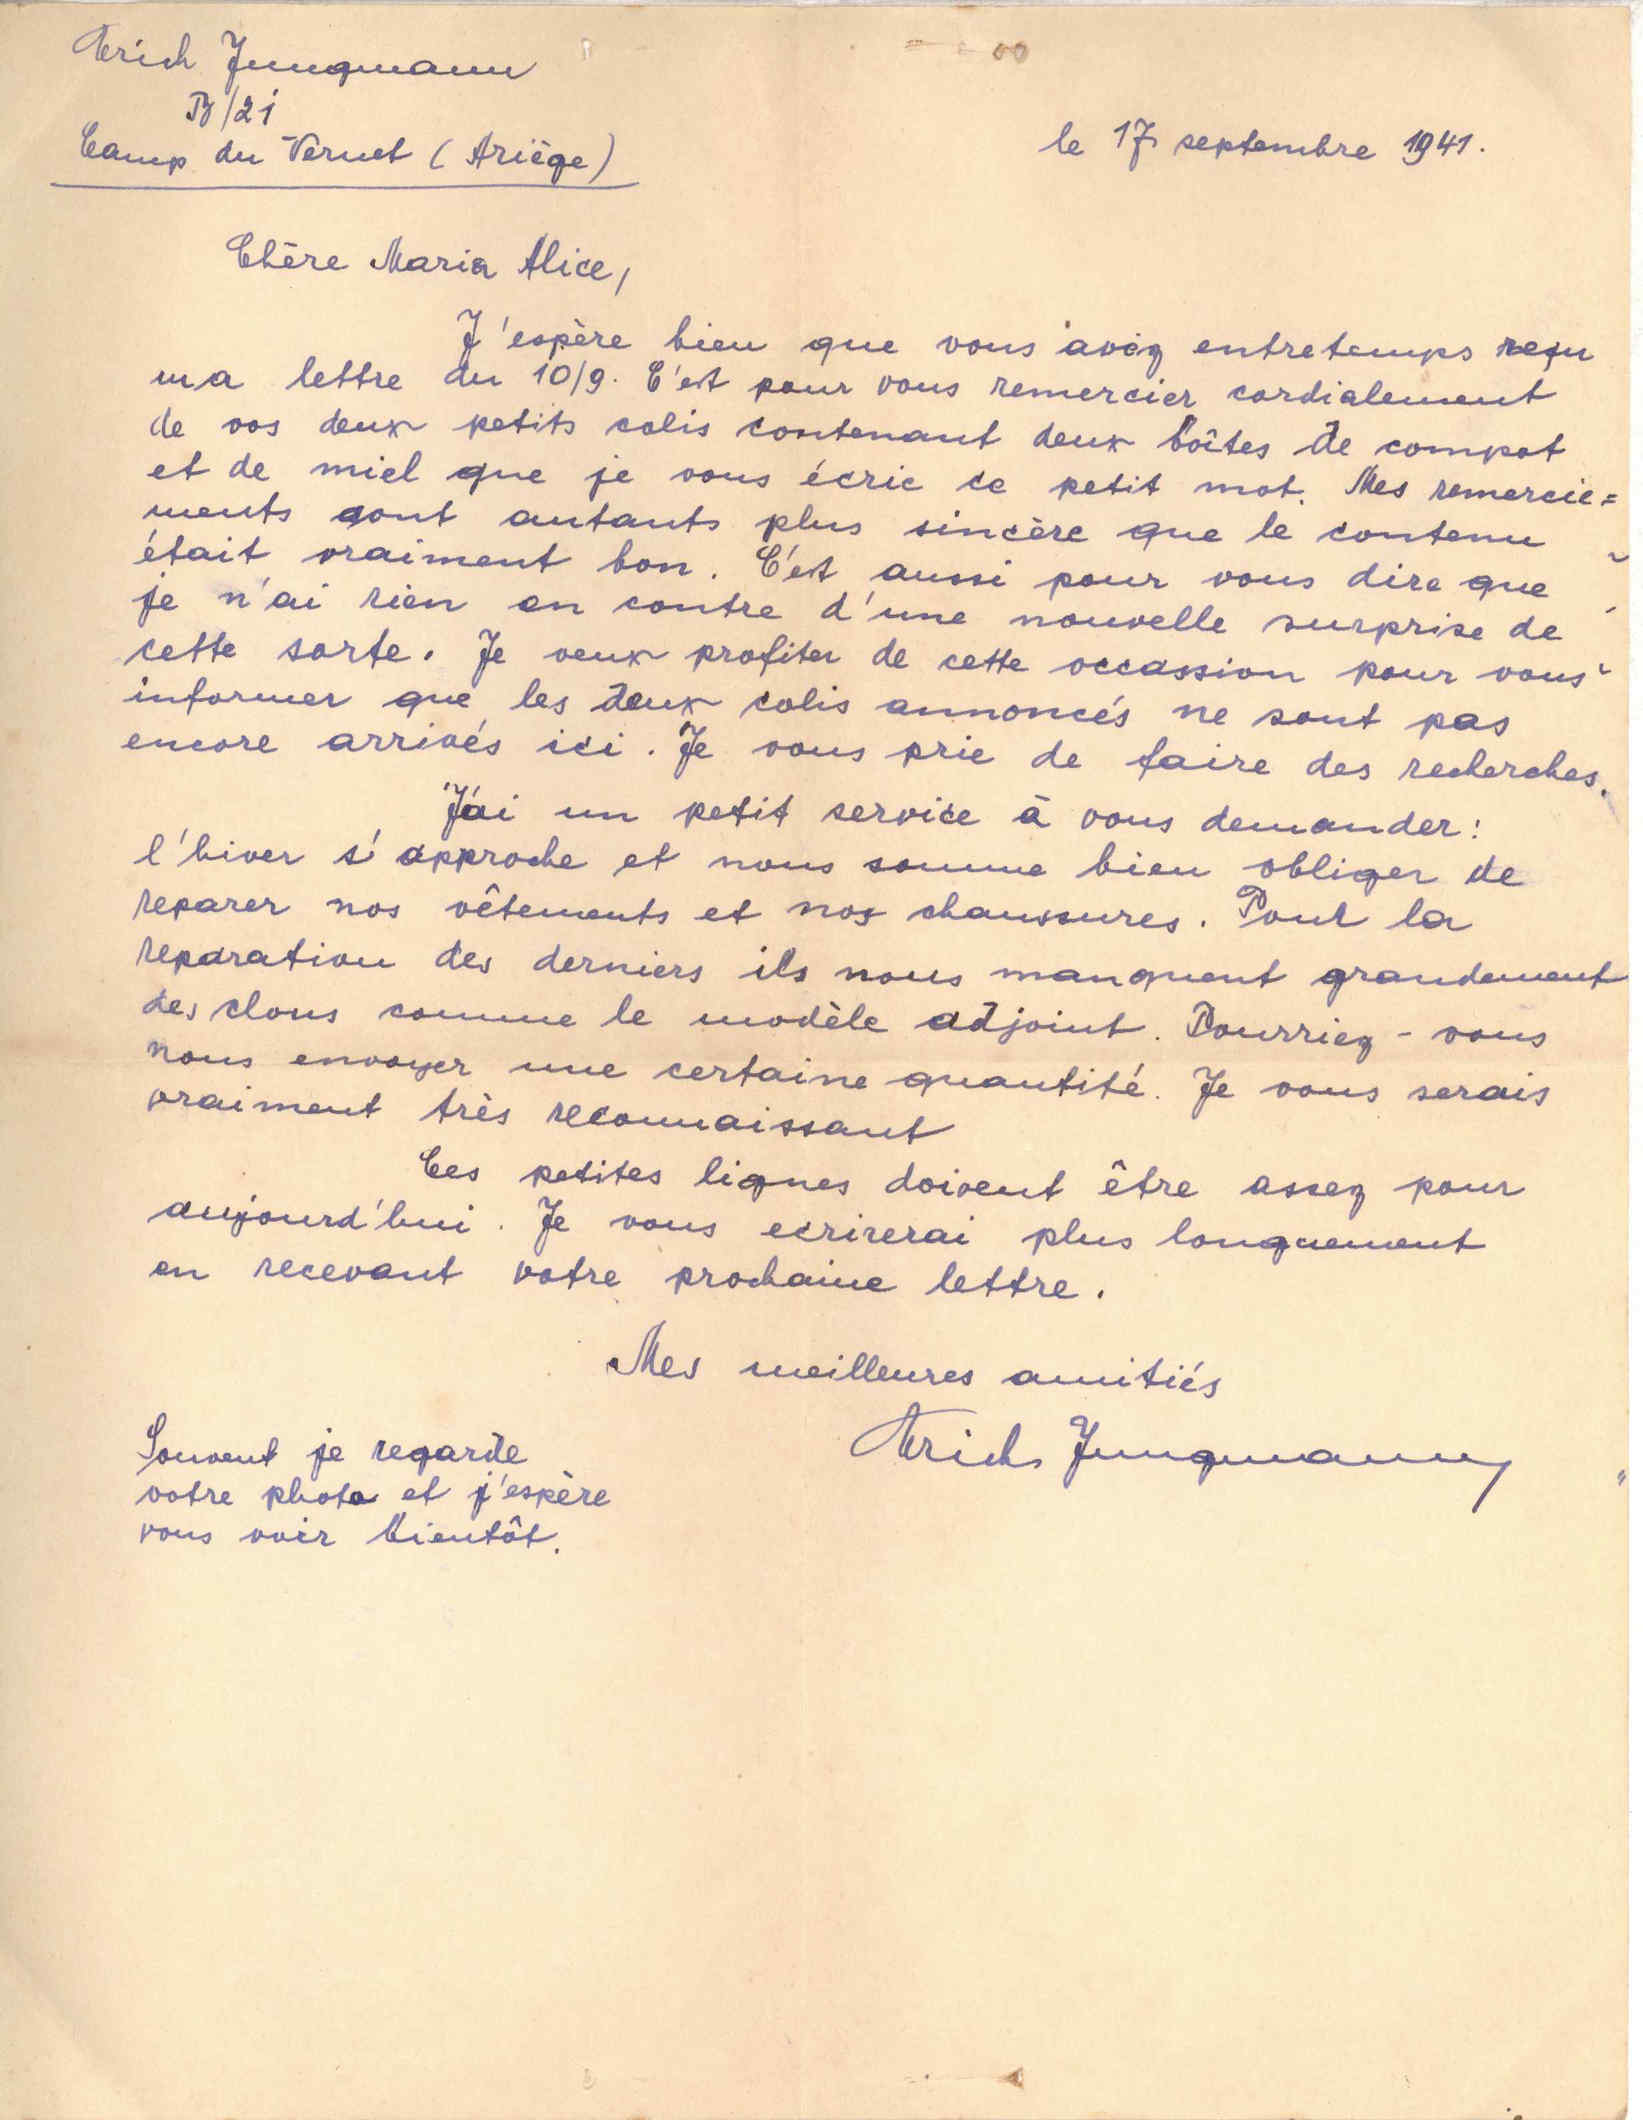 Erich Jungmann
B/21
Camp du Vernet (Ariège)
le 17 septembre 1941.
Chère Maria Alice,
J'espère bien que vous avez entretemps reçu
ma lettre du 10/9. C'est pour vous remercier cordialement
de vos deux petits colis contenant deux boîtes de compot
et de miel que je vous écrie ce petit mot. Mes remercie=
ments sont autants plus sincère que le contenu
était vraiment bon. C'est aussi pour vous dire que
je n'ai rien en contre d'une nouvelle surprise de
cette sorte. Je veux profiter de cette occassion pour vous
informer que les deux colis annoncés ne sont pas
encore arrivés ici. Je vous prie de faire des recherches.
J'ai un petit service à vous demander:
l'hiver s'approche et nous somme bien obliger de
reparer nos vêtements et nos chaussures. Pour la
reparation des derniers ils nous manquent grandement
des clous comme le modèle adjoint. Pourriez-vous
nous envoyer une certaine quantité. Je vous serais
vraiment très reconnaissant
Ces petites lignes doivent être assez pour
aujourd'hui. Je vous ecrirerai plus longuement
en recevant votre prochaine lettre.
Mes meilleures amitiés
Erich Jungmann
Souvent je regarde
votre photo et j'espère
vous voir bientôt.